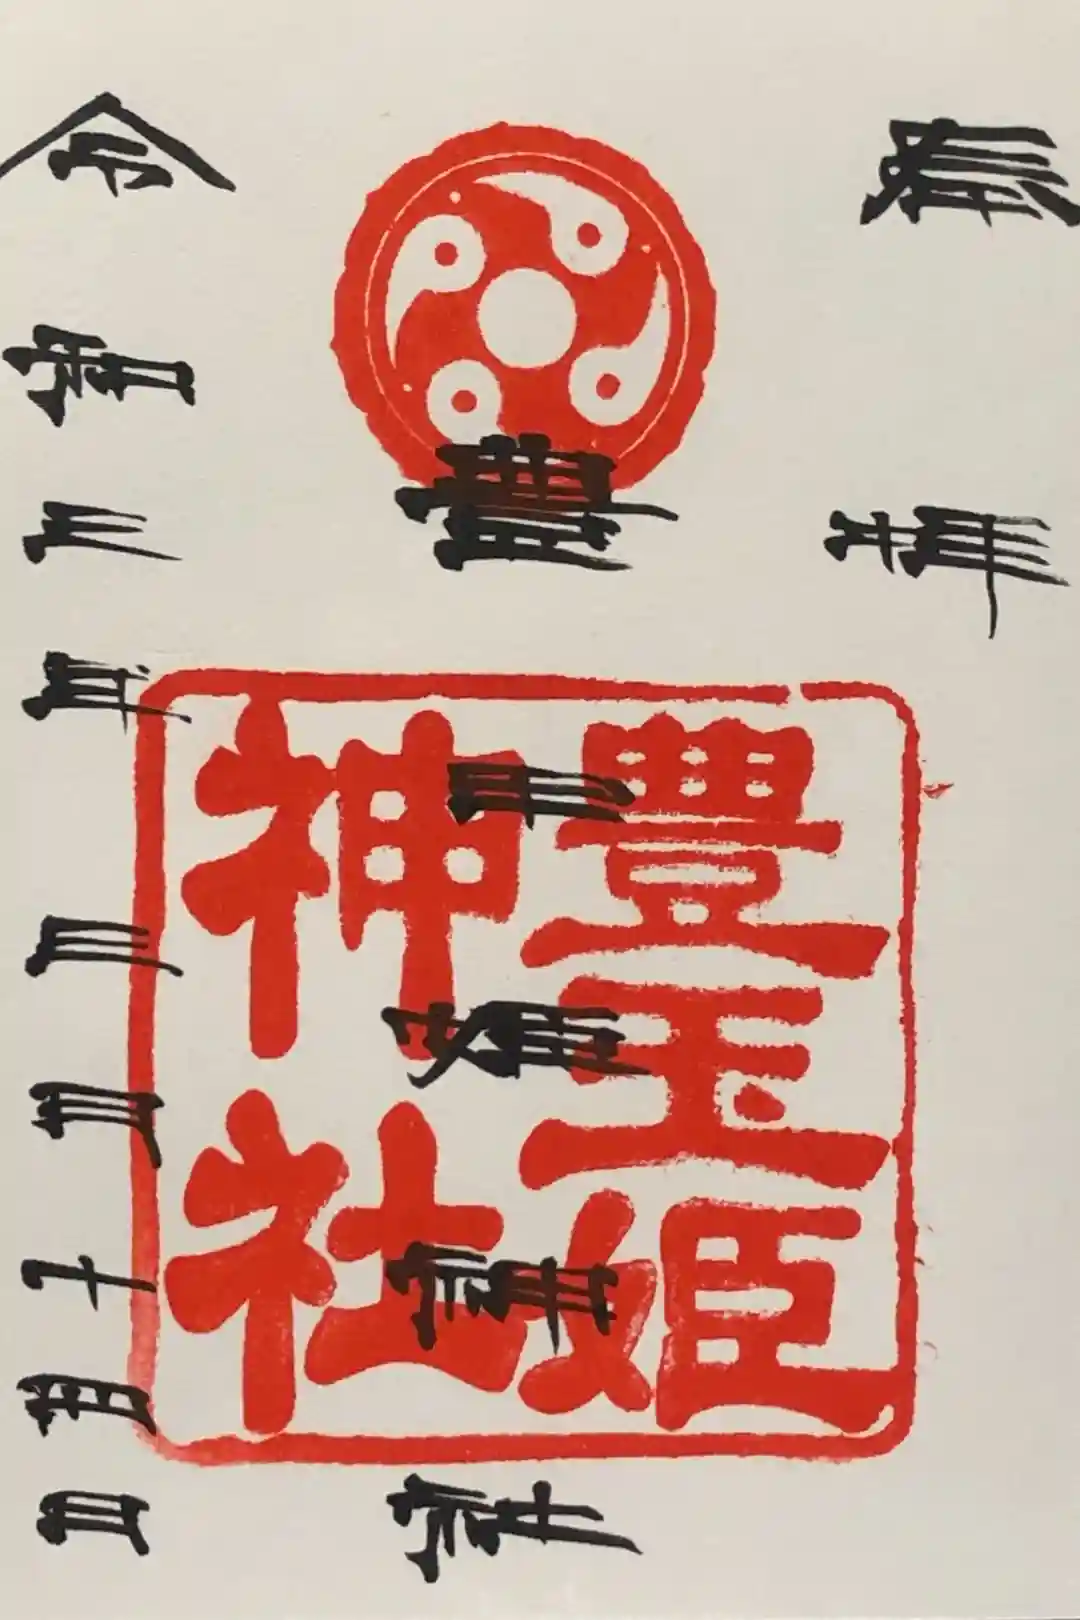 奉拝
豊玉姫神社
豊玉姫
神社
令和三年三月十日